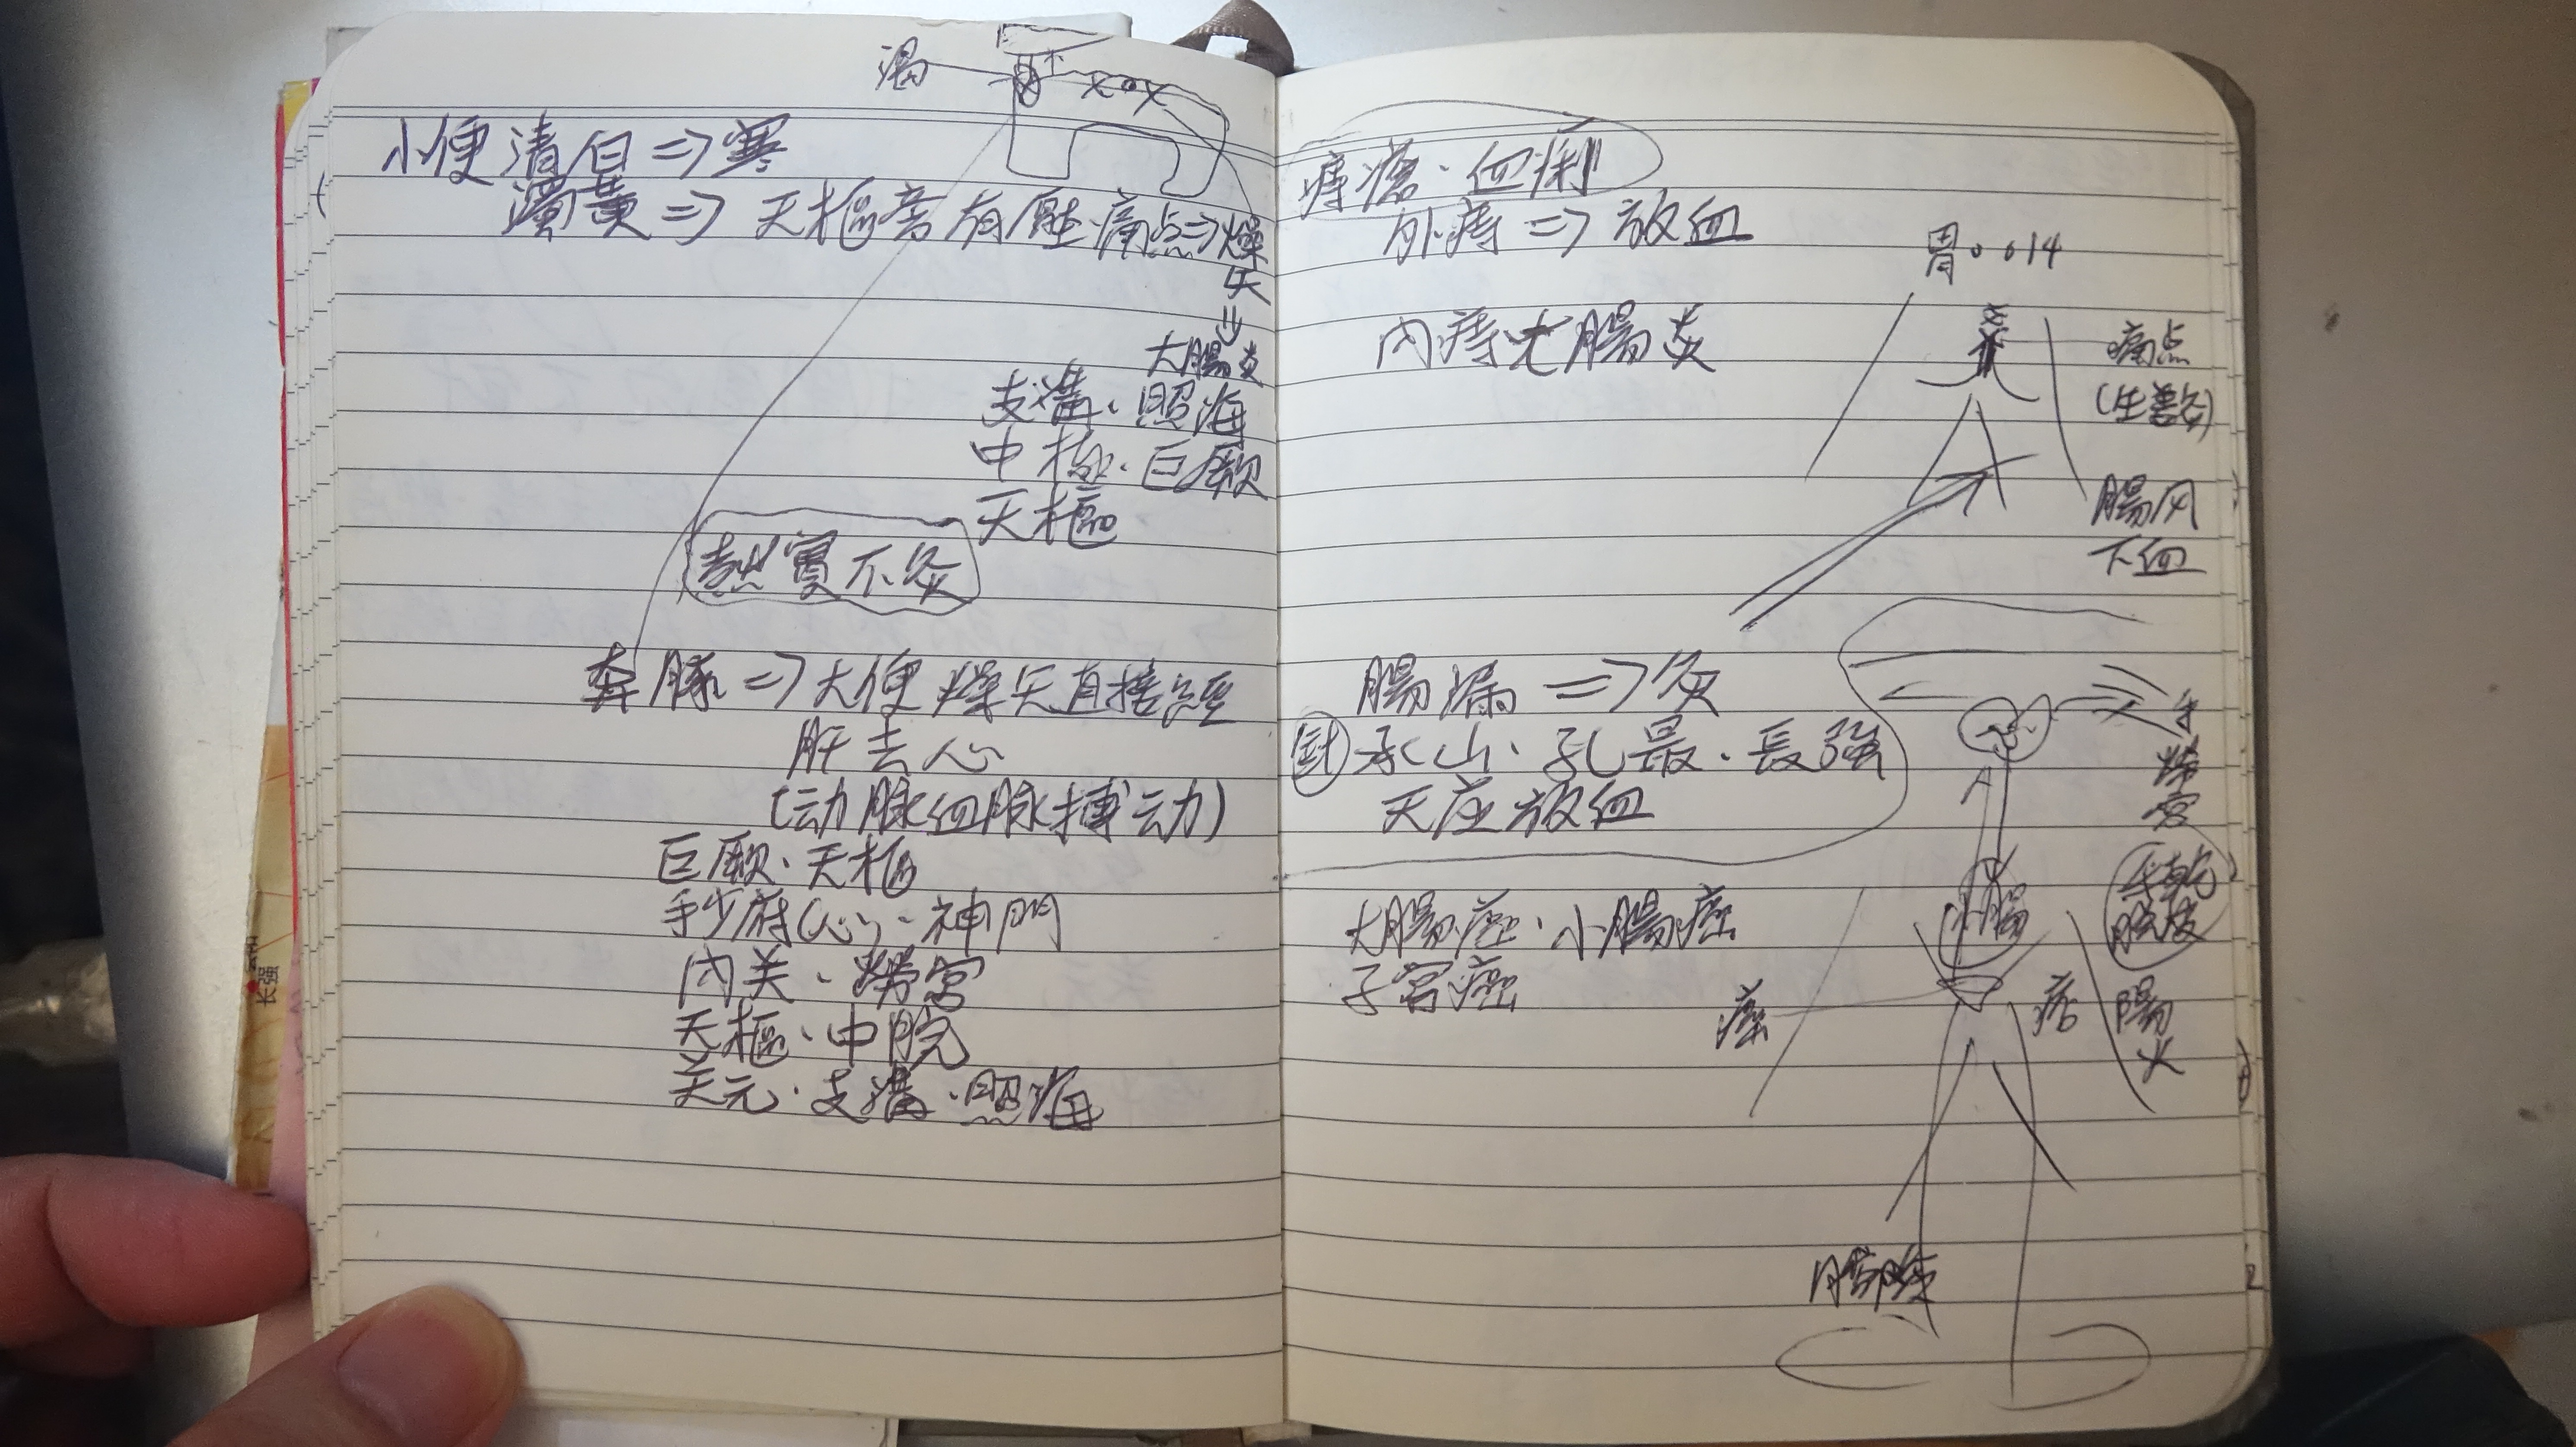 渴
小便清白⇒寒
濁黃⇒天樞旁有壓痛点⇒燥
矢
⇓
大腸炎
支溝、照海
中極、巨厥
天樞
熱實不灸
奔豚⇒大便燥矢直接經
肝去心
(动脉血脉搏动)
巨厥、天樞
手少府(心)、神門
内关、勞宮
天樞、中脘
关元、支溝、照海
痔瘡、血痢
外痔⇒放血
内痔 大腸炎
胃
痛点
腸风
下血
腸漏⇒灸
承山、孔最、長強
天应放血
大腸癌、小腸癌
子宮癌
小腸
陽
火
长强